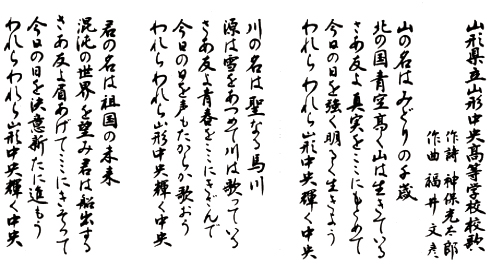 山形県立山形中央高等学校校歌
作詩 神保光太郎
作曲 福井文彦
山の名はみどりの千歳
北の国青空高く山は生きている
さあ友よ真実をここにもとめて
今日の日を強く明るく生きよう
われらわれら山形中央輝く中央
川の名は聖なる馬川
源は雪をあつめて川は歌っている
さあ友よ青春をここにきざんで
今日の日を声もたからか歌おう
われらわれら山形中央輝く中央
君の名は祖国の未来
混沌の世界を望み君は船出する
さあ友よ眉あげてここにきそって
今日の日を決意新たに進もう
われらわれら山形中央輝く中央